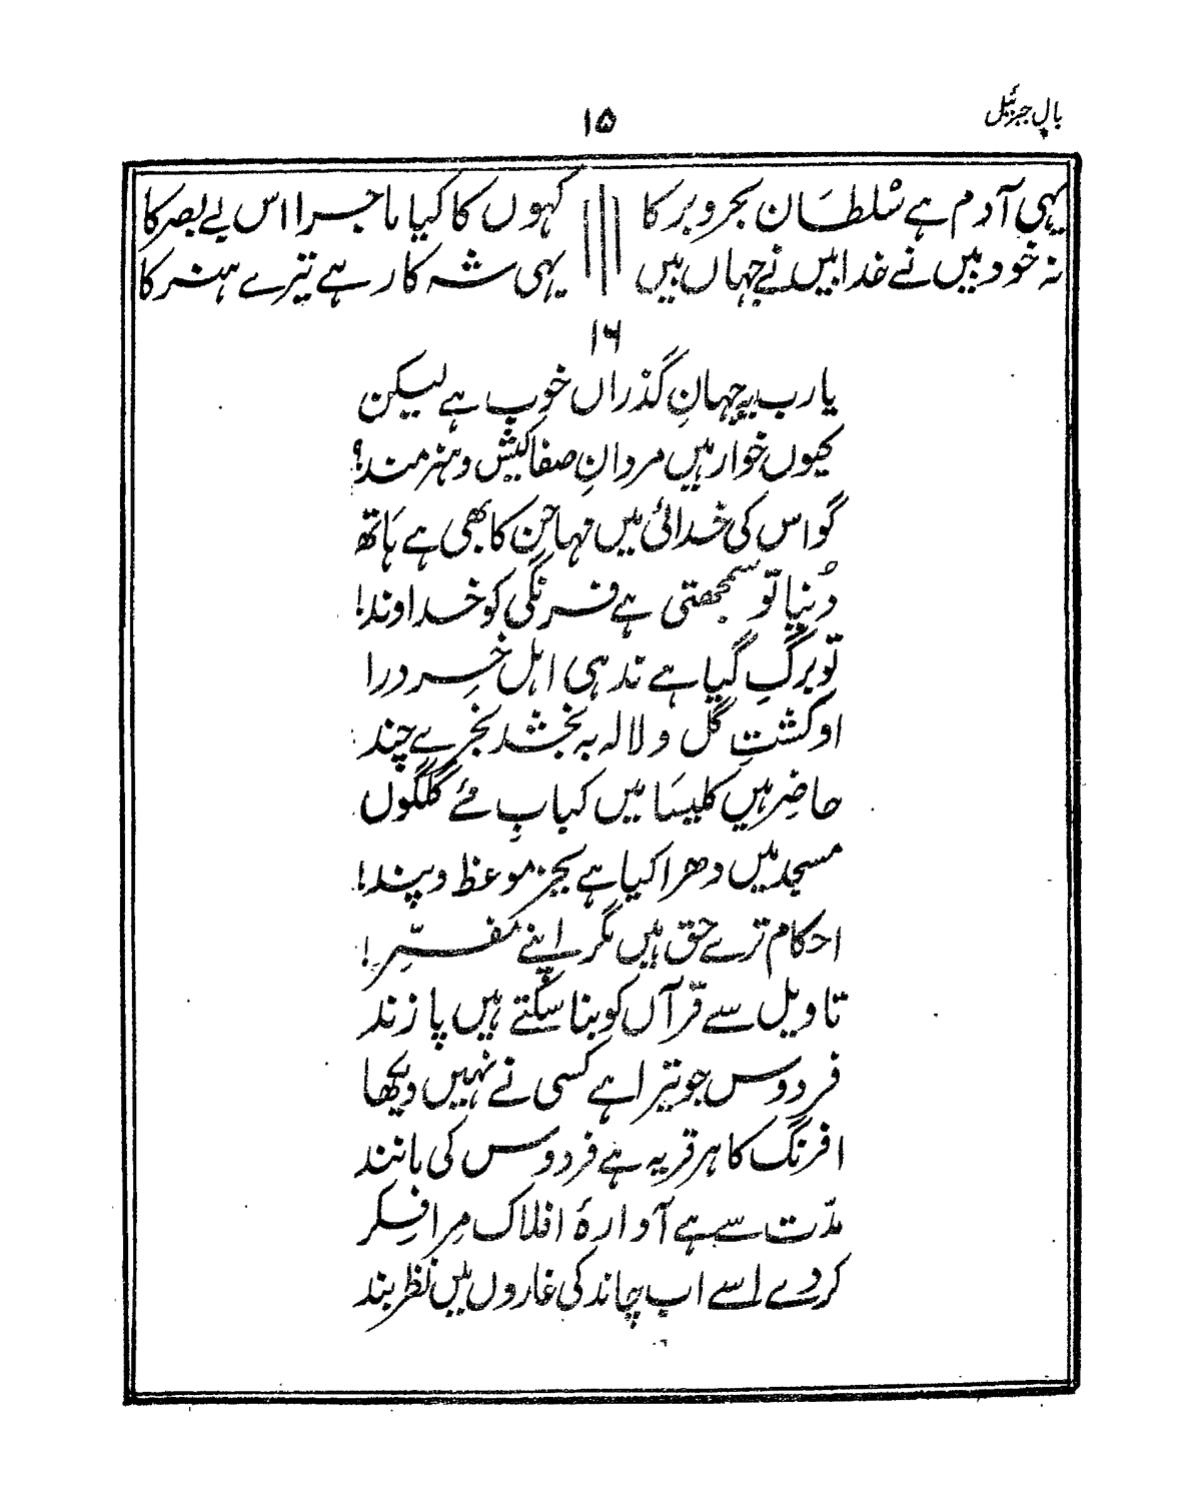 بالِ جبرئیل
۱۵
یہی آدم ہے سُلطان بحر و بر کا کہوں کا کیا ماجرا اس بے بصر کا
نہ خود بیں نے خدا بیں نے جہاں بیں یہی شہ کار ہے تیرے ہنر کا
۱۶
یا رب یہ جہانِ گذراں خوب ہے لیکن
کیوں خوار ہیں مردانِ صفا کیش و ہنرمند؟
گو اس کی خدائی میں مہاجن کا بھی ہے ہاتھ
دُنیا تو سمجھتی ہے فرنگی کو خداوند!
تو برگِ گیا ہے ندہی اہلِ خِرد را
او کشتِ گل و لالہ بہ بخشد بخرے چند
حاضِر ہیں کلیسا میں کبابِ مئے گلگوں
مسجد میں دھرا کیا ہے بجز موعظ و پند!
احکام ترے حق ہیں مگر اپنے مُفسّرِ!
تاویل سے قرآں کو بنا سکتے ہیں پازند
فردوس جو تیرا ہے کسی نے نہیں دیکھا
افرنگ کا ہر قریہ ہے فردوس کی مانند
مدّت سے ہے آوارۂ افلاک مِرا فِکر
کر دے اسے اب چاند کی غاروں میں نظر بند